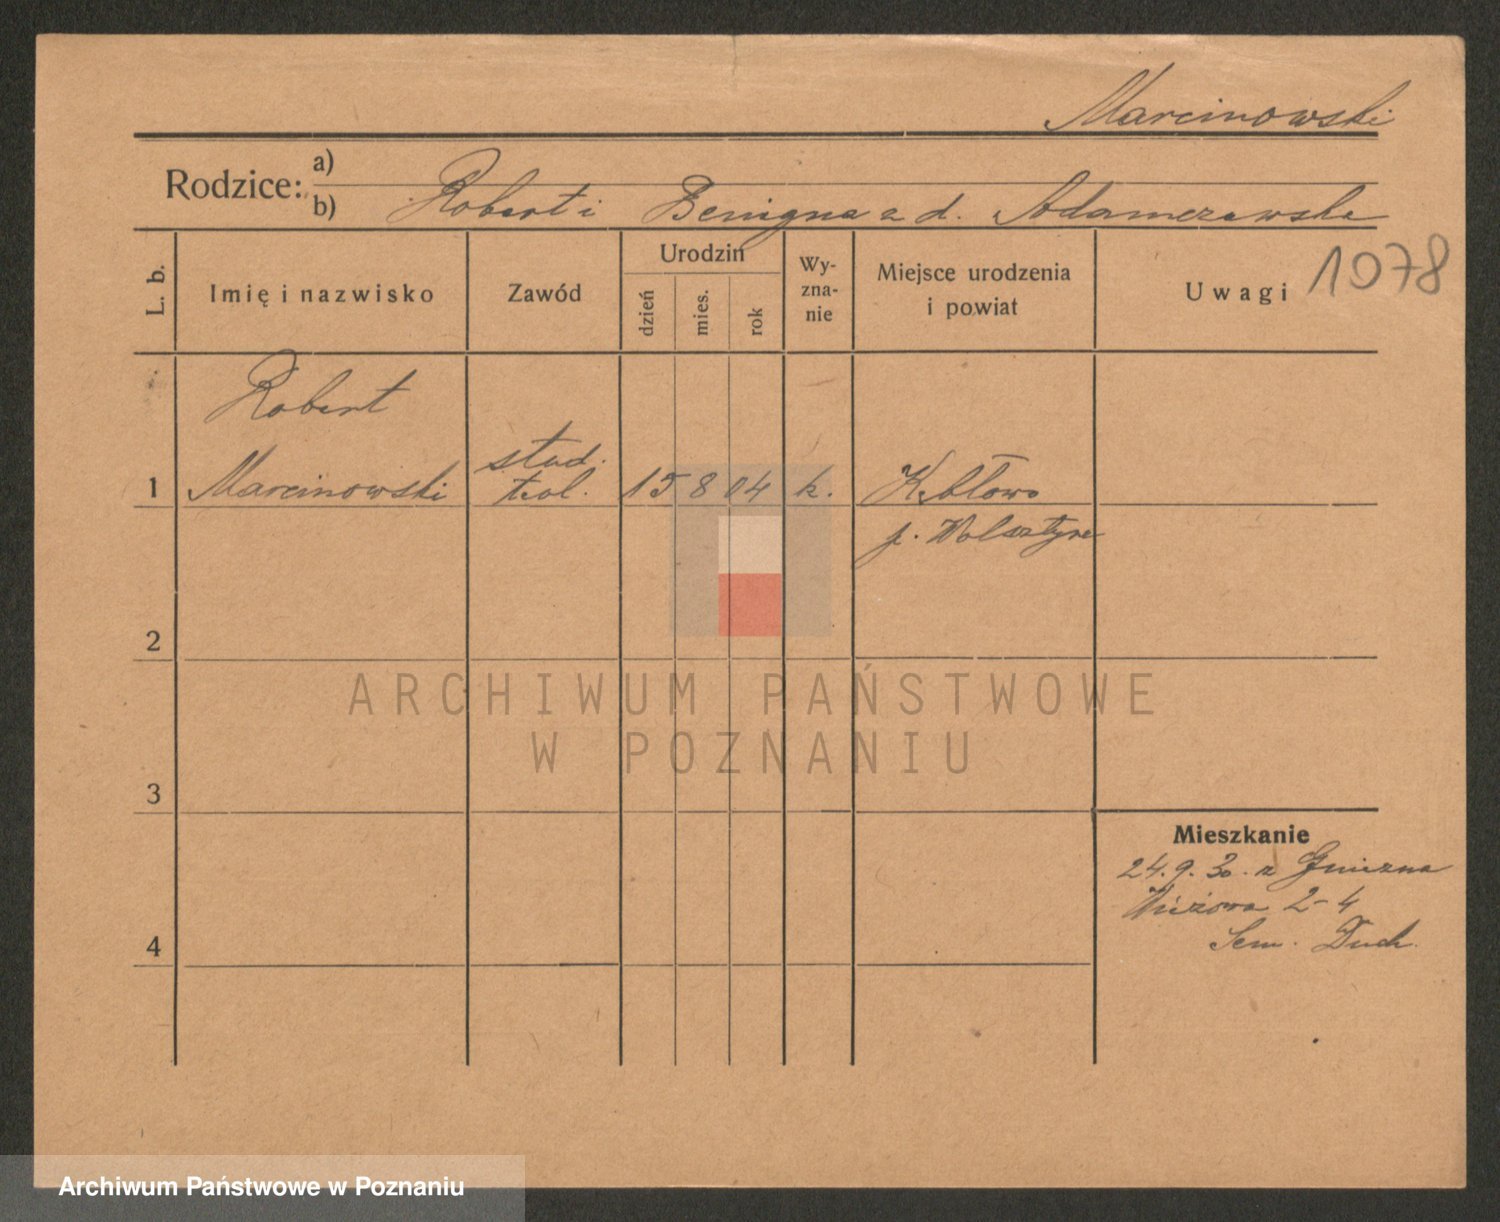 Marcinowski
Rodzice: a)
b) Robert i Benigna z d. Adamczewska
L. b.
Imię i nazwisko
Zawód
Urodzin
dzień
mies.
rok
Wy-
zna-
nie
Miejsce urodzenia
i powiat
Uwagi
1078
Robert
1 Marcinowski
stud.
teol.
15 8 04 k.
Kębłowo
p. Wolsztyn
2
3
4
Mieszkanie
24.9.30. z Gniezna
2-4
Sem. Duch.
ARCHIWUM PAŃSTWOWE
W POZNANIU
Archiwum Państwowe w Poznaniu